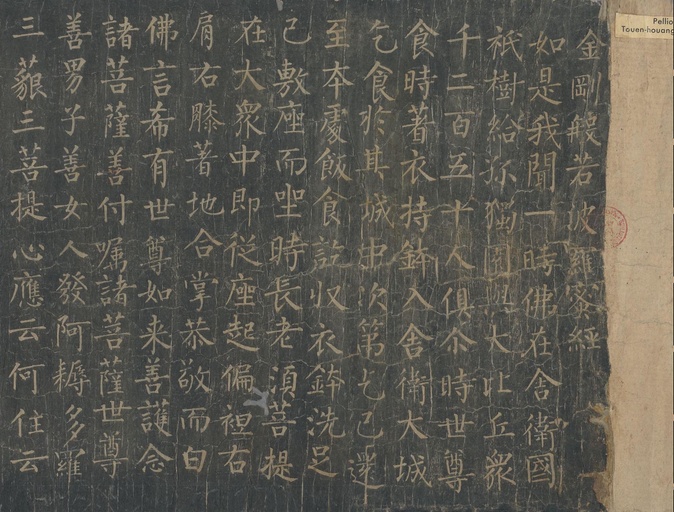 金剛般若波羅蜜經
如是我聞一時佛在舍衛國
祇樹給孤獨園與大比丘眾
千二百五十人俱尒時世尊
食時著衣持鉢入舍衛大城
乞食於其城中次第乞已還
至本處飯食訖収衣鉢洗足
已敷座而坐時長老湏菩提
在大衆中即從座起偏袒右
肩右膝著地合掌恭敬而白
佛言希有世尊如来善護念
諸菩薩善付嘱諸菩薩世尊
善男子善女人發阿耨多羅
三藐三菩提心應云何住云
Pellio
Touen-houang